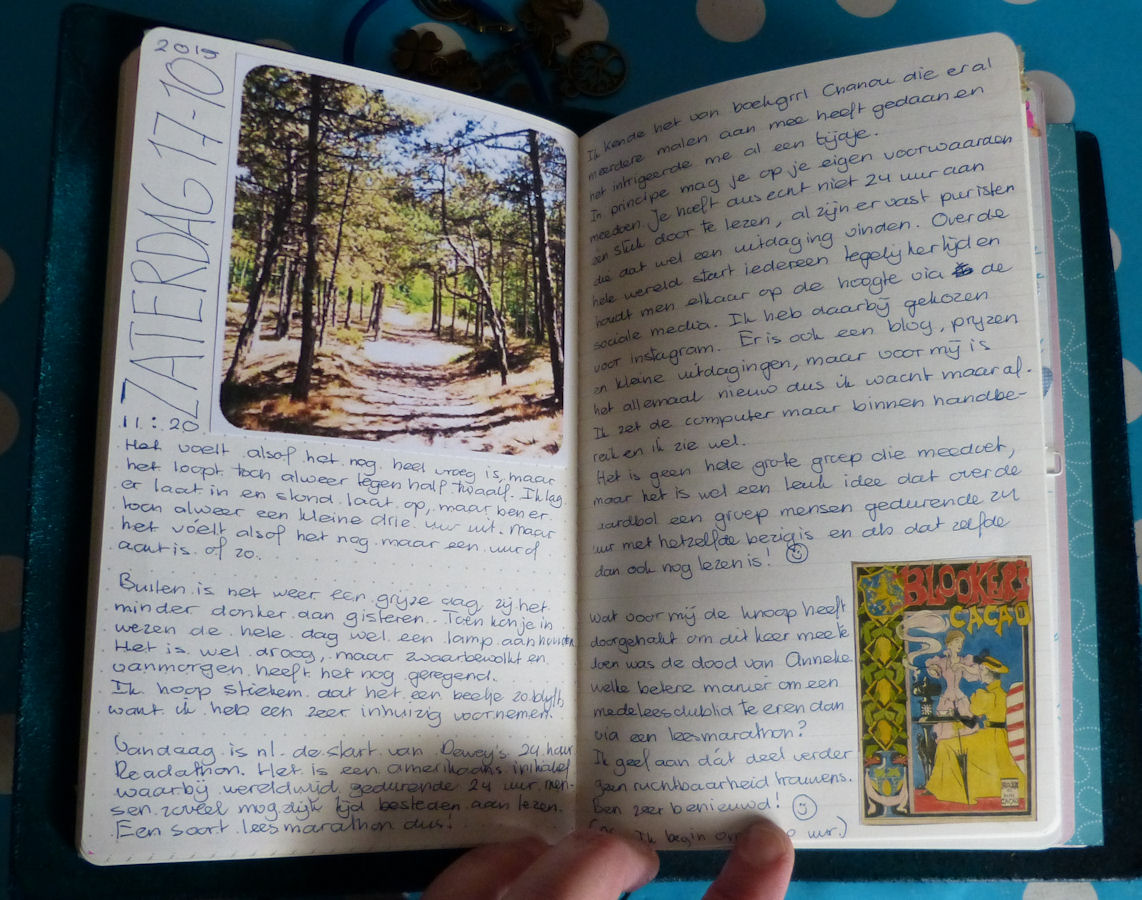 2015
ZATERDAG 17-10
11:20
Het voelt alsof het nog heel vroeg is, maar
het loopt toch alweer tegen half twaalf. Ik lag
er laat in en stond laat op, maar ben er
toch alweer een kleine drie uur uit. Maar
het voelt alsof het nog maar een uur of
acht is of zo.
Buiten is het weer een grijze dag, zij het
minder donker dan gisteren. Toen kon je in
wezen de hele dag wel een lamp aan houden.
Het is wel droog, maar zwaarbewolkt en
vanmorgen heeft het nog geregend.
Ik hoop stiekem dat het een beetje zo blijft,
want ik heb een zeer inhuizig voornemen.
Vandaag is nl. de start van Dewey's 24 hour
Readathon. Het is een amerikaans initiatief
waarbij wereldwijd gedurende 24 uur men-
sen zoveel mogelijk tijd besteden aan lezen.
Een soort leesmarathon dus!
Ik kende het van boekgrrl Chanou die er al
meerdere malen aan mee heeft gedaan en
het intrigeerde me al een tijdje.
In principe mag je op je eigen voorwaarden
meedoen. Je hoeft dus echt niet 24 uur aan
één stuk door te lezen, al zijn er vast puristen
die dat wel een uitdaging vinden. Over de
hele wereld start iedereen tegelijkertijd en
houdt men elkaar op de hoogte via de
sociale media. Ik heb daarbij gekozen
voor instagram. Er is ook een blog, prijzen
en kleine uitdagingen, maar voor mij is
het allemaal nieuw dus ik wacht maar af.
Ik zet de computer maar binnen handbe-
reik en ik zie wel.
Het is geen hele grote groep die meedoet,
maar het is wel een leuk idee dat over de
aardbol een groep mensen gedurende 24
uur met hetzelfde bezig is en als dat zelfde
dan ook nog lezen is!
Wat voor mij de knoop heeft
doorgehakt om dit keer mee te
doen was de dood van Anneke.
Welke betere manier om een
medeleesclublid te eren dan
via een leesmarathon?
Ik geef aan dát deel verder
geen ruchtbaarheid trouwens.
Ben zeer benieuwd!
Ik begin om uur.)
BLOOKER'S
CACAO